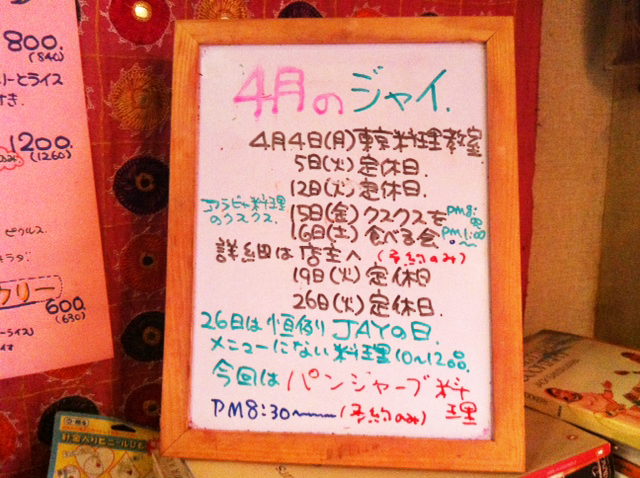 800.
(840)
ーとライス
1200.
(1260)
ピクルス
600.
(630)
4月のジャイ.
4月4日(月)東京料理教室
5日(火)定休日.
12日(火)定休日.
アラビヤ料理
のクスクス.
15日(金)クスクスを
PM8:00
16日(土)食べる会.
PM1:00〜
詳細は店主へ(予約のみ)
19日(火)定休日
26日(火)定休日.
26日は恒例JAYの日.
メニューにない料理10〜12品.
今回はパンジャーブ料理
PM8:30〜(予約のみ)